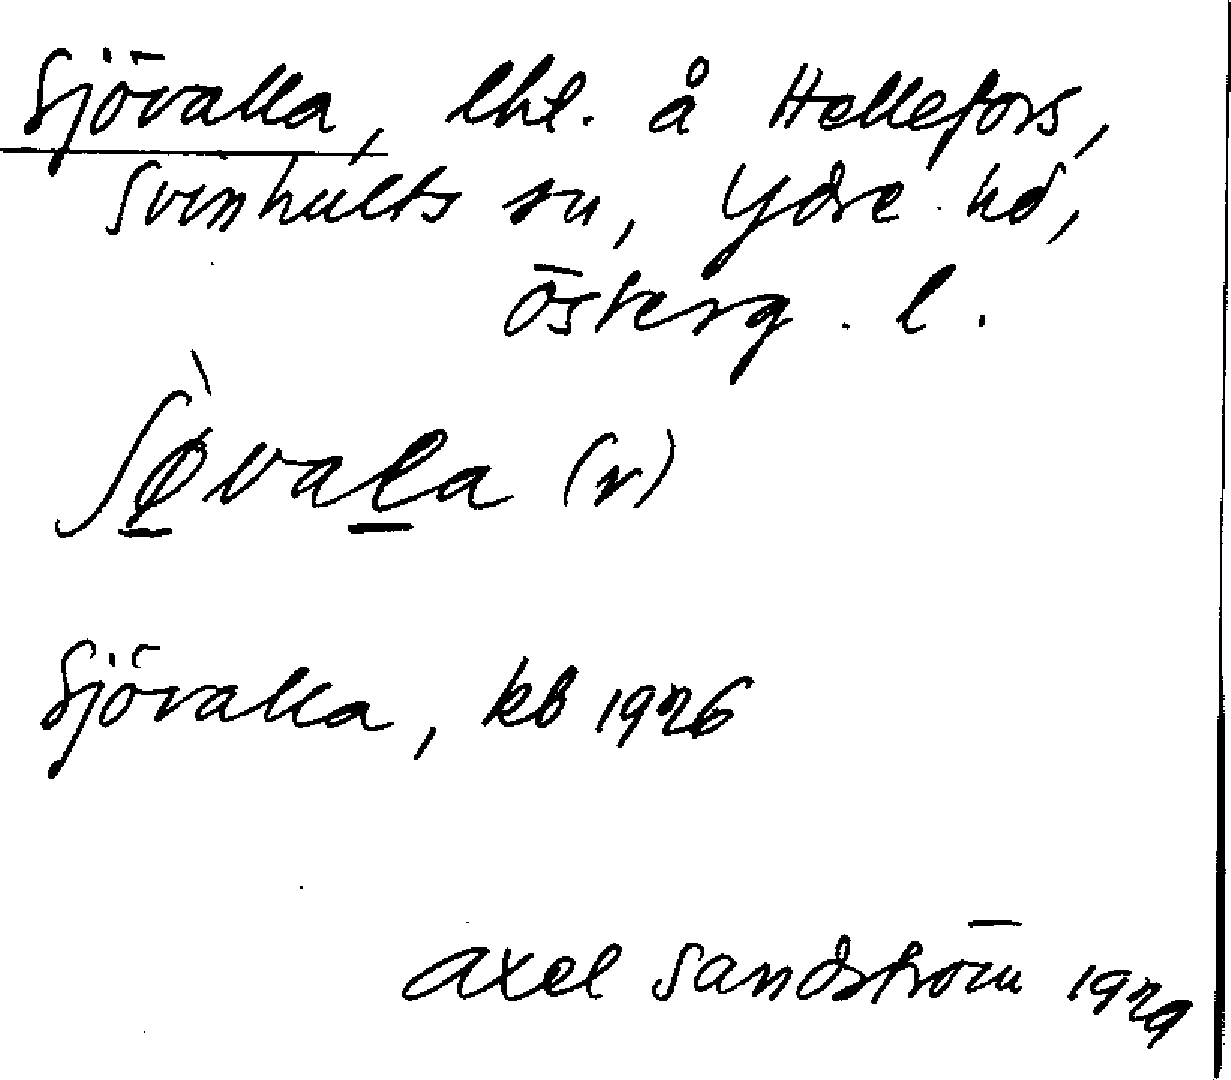 Sjövalla, lht. å Hellefors,
Svinhults sn, Ydre hd,
Österg. l.
ʃø̠̀val̠a (r)
Sjövalla, kb 1926
Axel Sandström 1929